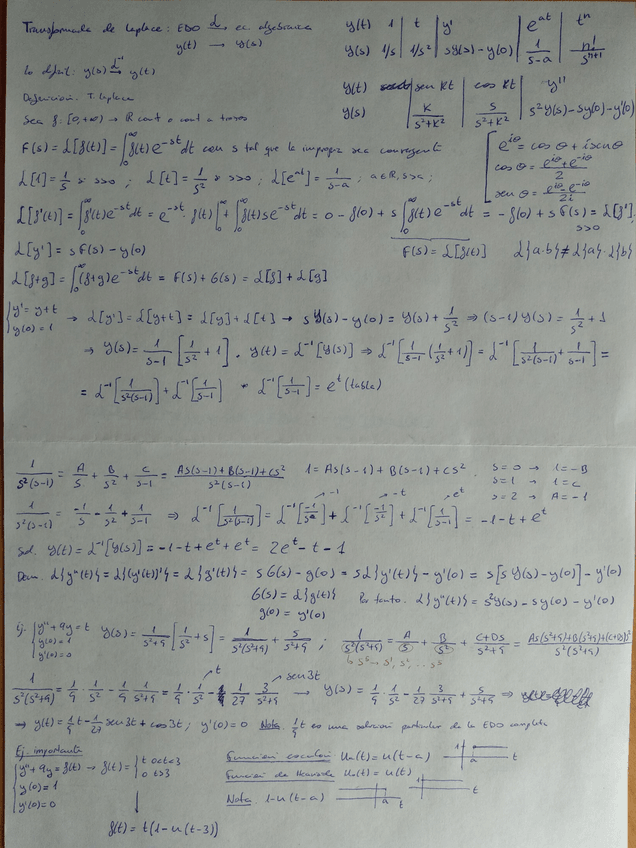 Transformada de Laplace: EDO —L→ ec. algebraica
y(t) → Y(s)
y(t) | 1 | t | y' | e^{at} | t^n
Y(s) | 1/s | 1/s² | sY(s) - y(0) | 1/(s-a) | n!/s^{n+1}
Y(s) —L⁻¹→ y(t)
y(t) | sen kt | cos kt | y''
Y(s) | k/(s²+k²) | s/(s²+k²) | s²Y(s) - sy(0) - y'(0)
Definición. T. Laplace
Sea f: [0,+∞) → R cont o cont a trozos
F(s) = L[f(t)] = ∫₀^∞ f(t) e^{-st} dt con s tal que la impropia sea convergente
e^{iθ} = cos θ + i sen θ
cos θ = (e^{iθ} + e^{-iθ})/2
sen θ = (e^{iθ} - e^{-iθ})/2i
L[1] = 1/s si s>0 ; L[t] = 1/s² si s>0 ; L[e^{at}] = 1/(s-a) ; a∈R, s>a ;
L[f'(t)] = ∫₀^∞ f'(t) e^{-st} dt = e^{-st} · f(t) |₀^∞ + ∫₀^∞ f(t) s e^{-st} dt = 0 - f(0) + s ∫₀^∞ f(t) e^{-st} dt = -f(0) + s F(s) = L[f']
s>0
F(s) = L[f(t)]
L[y'] = s F(s) - y(0)
L{a·b} ≠ L{a}·L{b}
L[f+g] = ∫₀^∞ (f+g) e^{-st} dt = F(s) + G(s) = L[f] + L[g]
{ y' = y + t
y(0) = 1
→ L[y'] = L[y+t] = L[y] + L[t] → s Y(s) - y(0) = Y(s) + 1/s² ⇒ (s-1) Y(s) = 1/s² + 1
⇒ Y(s) = 1/(s-1) [1/s² + 1] . y(t) = L⁻¹[Y(s)] ⇒ L⁻¹[1/(s-1) (1/s² + 1)] = L⁻¹[1/(s²(s-1)) + 1/(s-1)] =
= L⁻¹[1/(s²(s-1))] + L⁻¹[1/(s-1)] * L⁻¹[1/(s-1)] = e^t (tabla)
1/(s²(s-1)) = A/s + B/s² + C/(s-1) = (As(s-1) + B(s-1) + Cs²)/(s²(s-1)) 1 = As(s-1) + B(s-1) + Cs² .
s=0 → 1=-B
s=1 → 1=C
s=2 → A=-1
1/(s²(s-1)) = -1/s - 1/s² + 1/(s-1) ⇒ L⁻¹[1/(s²(s-1))] = L⁻¹[-1/s] + L⁻¹[-1/s²] + L⁻¹[1/(s-1)] = -1 - t + e^t
-1 -t e^t
Sol. y(t) = L⁻¹[Y(s)] = -1 - t + e^t + e^t = 2e^t - t - 1
Dem. L{y''(t)} = L{(y'(t))'} = L{g'(t)} = s G(s) - g(0) = s L{y'(t)} - y'(0) = s[s Y(s) - y(0)] - y'(0)
G(s) = L{g(t)}
g(0) = y'(0)
Por tanto. L{y''(t)} = s²Y(s) - sy(0) - y'(0)
Ej. { y'' + 9y = t
y(0) = 1
y'(0) = 0
Y(s) = 1/(s²+9) [1/s² + s] = 1/(s²(s²+9)) + s/(s²+9) ; 1/(s²(s²+9)) = A/s + B/s² + (C+Ds)/(s²+9) = (As(s²+9) + B(s²+9) + (C+Ds)s²)/(s²(s²+9))
1/(s²(s²+9)) = 1/9 · 1/s² - 1/9 · 1/(s²+9) = 1/9 · 1/s² - 1/27 · 3/(s²+9) → Y(s) = 1/9 · 1/s² - 1/27 · 3/(s²+9) + s/(s²+9) ⇒
t sen 3t
⇒ y(t) = 1/9 t - 1/27 sen 3t + cos 3t ; y'(0) = 0 Nota. 1/9 t es una solución particular de la EDO completa
Ej. importante
{ y'' + 9y = f(t) → f(t) = { t 0<t<3
0 t>3
y(0) = 1
y'(0) = 0
f(t) = t(1 - u(t-3))
Función escalón Uₐ(t) = u(t-a) 1 a t
Función de Heaviside U₀(t) = u(t) 1 t
Nota. 1 - u(t-a) a t